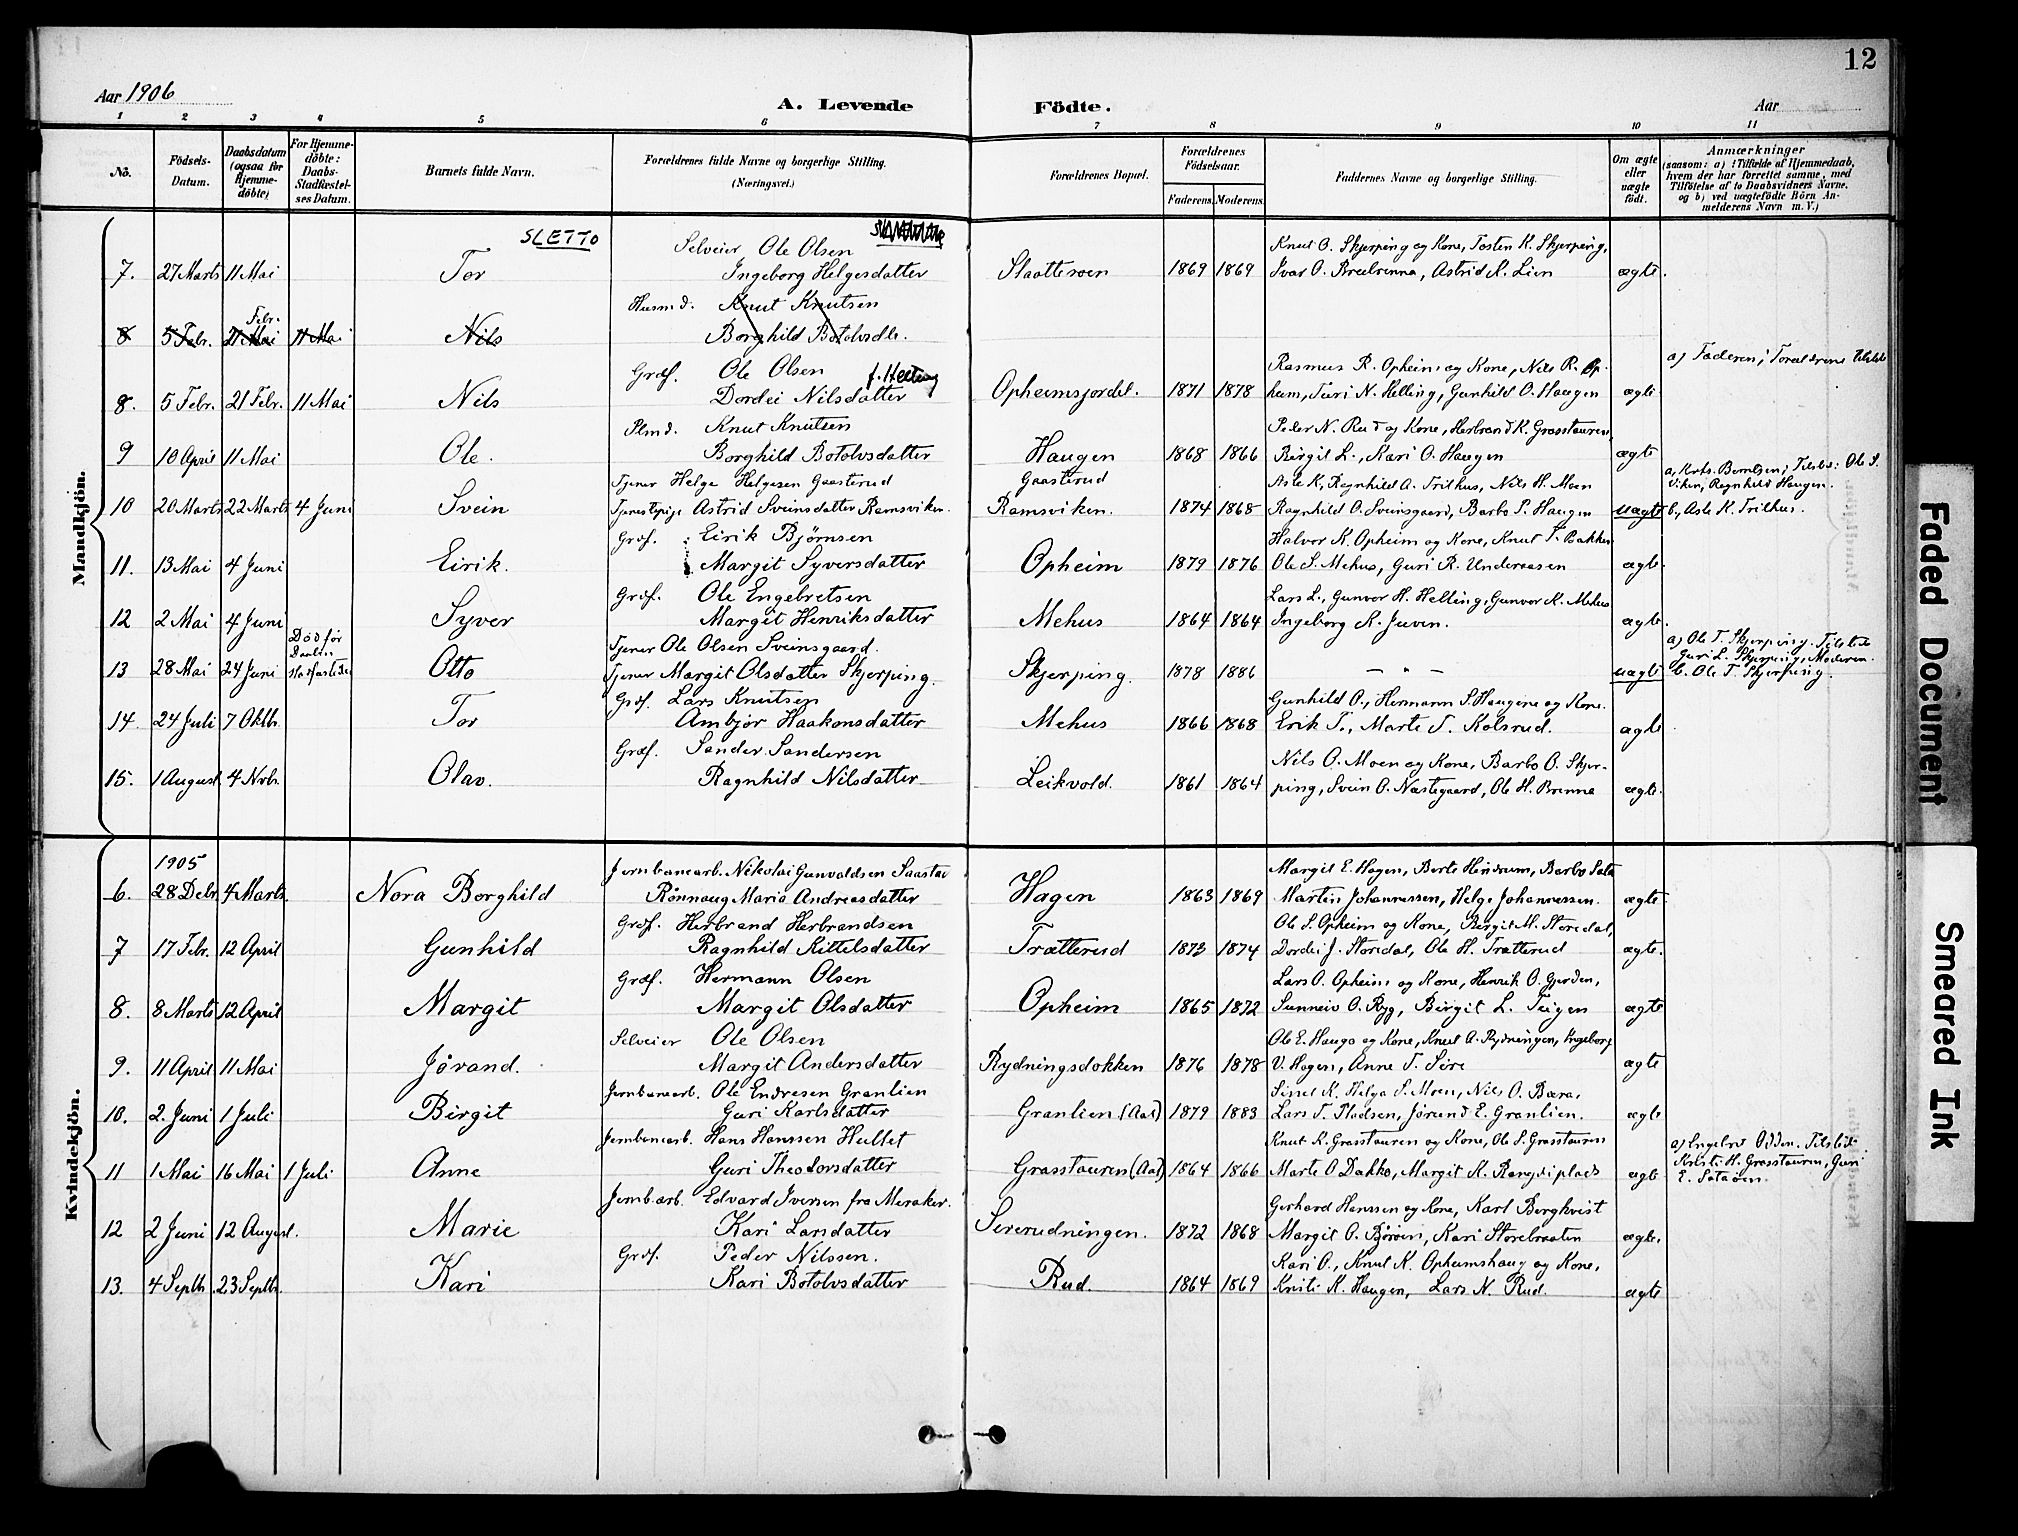 12
Aar 1906
A. Levende Födte.
Aar
1 2 3 4 5 6 7 8 9 10 11
No.
Födsels-Datum.
Daabsdatum (ogsaa for Hjemme-döbte)
For Hjemme-döbte: Daabs-Stadfæstel-ses Datum.
Barnets fulde Navn.
Forældrenes fulde Navne og borgerlige Stilling. (Næringsvei.)
Forældrenes Bopæl.
Forældrenes Födselsaar.
Faderens. Moderens.
Faddernes Navne og borgerlige Stilling.
Om ægte eller uægte födt.
Anmærkninger
(saasom: a) i Tilfælde af Hjemmedaab,
hvem der har forrettet samme, med
Tilföielse af to Daabsvidners Navne.
og b) ved uægtefödte Börn An-
melderens Navn m. V.)
Mandkjön.
SLETTO
Selveier Ole Olsen
Knut O. Skjerping og Kone, Tosten K. Skjerping,
7. 27 Marts 11 Mai Tor Ingeborg Helgesdatter Slaatteroen 1869 1869 Ivar O. Breebrenna, Astrid K. Lien ægte.
Husmd. Knut Knutsen
Febr.
8 5 Febr. 21 Mai 11 Mai Nils Borghild Botolvsdtr.
a) Faderen; Forældrene tilstede
Græf. Ole Olsen f. Helling
Rasmus R. Opheim og Kone, Nils R. Op-
8. 5 Febr. 21 Febr. 11 Mai Nils Dordei Nilsdatter Opheimsjordet. 1871 1878 heim, Turi N. Helling, Gunhild O. Haugen ægte
Plmd. Knut Knutsen
Peder N. Rud og Kone, Herbrand K. Grasstauren,
9 10 April 11 Mai Ole. Borghild Botolvsdatter Haugen 1868 1866 Birgit L., Kari O. Haugen ægte
Tjener Helge Helgesen Gaasterud Gaasterud
Asle K, Ragnhild A. Trilhus, Nils H. Moen
a, Krfs. Berntsen; Tilsted: Ole S.
Viken, Ragnhild Haugen.
10 20 Marts 22 Marts 4 Juni Svein Tjenestepige Astrid Sveinsdatter Ramsviken. Ramsviken. 1874 1868 Ragnhild O. Sveinsgaard, Barbo P. Haugen uægte b, Asle K. Trilhus.
Græf. Eirik Bjørnsen
Halvor K. Opheim og Kone, Knut T. Bakken
11. 13 Mai 4 Juni Eirik. Margit Syversdatter Opheim 1879 1876 Ole S. Mehus, Guri R. Underaasen ægte
Græf. Ole Engebretsen
Lars L., Gunvor H. Helling, Gunvor K. Mehus
12 2 Mai 4 Juni Syver Margit Henriksdatter Mehus 1864 1864 Ingeborg K. Juven. ægte
Død før Daaben stadfæstedes
Tjener Ole Olsen Sveinsgaard.
a) Ole T. Skjerping. Tilstede
Guri L. Skjerping, Moderen.
13 28 Mai 24 Juni Otto Tjener Margit Olsdatter Skjerping. Skjerping. 1878 1886 — " — uægte b. Ole T. Skjerping.
Græf. Lars Knutsen
Gunhild O., Hermann S. Haugene og Kone.
14. 24 Juli 7 Oktb. Tor Ambjør Haakonsdatter Mehus 1866 1868 Erik T., Marte T. Kolsrud. ægte
Græf. Sander Sandersen
Nils O. Moen og Kone, Barbo O. Skjer-
15. 1 August 4 Nvb. Olav. Ragnhild Nilsdatter Leikvold. 1861 1864 ping, Svein O. Næstegaard, Ole H. Brenna ægte.
Kvindekjön.
1905
Jernbanearb. Nikolai Gunvaldsen Saastad
Margit E. Hagen, Berte Hindrum, Barbo Sata
6. 28 Debr. 4 Marts Nora Borghild Rønnaug Maria Andreasdatter Hagen 1863 1869 Martin Johannessen, Helge Johannessen. ægte
Græf. Herbrand Herbrandsen
Ole S. Opheim og Kone, Birgit M. Storedal,
7 17 Febr. 12 April Gunhild Ragnhild Kittelsdatter Trætterud 1873 1874 Dordei J. Storedal, Ole H. Trætterud ægte.
Græf. Hermann Olsen
Lars O. Opheim og Kone, Henrik O. Gjorden,
8. 8 Marts 12 April Margit Margit Olsdatter Opheim 1865 1872 Sunneiv O. Ryg, Birgit L. Teigen ægte
Selveier Ole Olsen
Ole E. Hauge og Kone, Knut A. Rydningen, Ingeborg
9. 11 April 11 Mai Jørand. Margit Andersdatter Rydningsdokken 1876 1878 V. Hagen, Anne T. Sire ægte
Jernbanearb. Ole Endresen Granlien
Sissel K. Helga S. Moen, Nils O. Bæra,
10. 2. Juni 1 Juli Birgit Guri Karlsdatter Granlien (Aal) 1879 1883 Lars T. Pladsen, Jørund E. Granlien. ægte
Jernbanearb. Hans Hanssen Hultet
Knut K. Grasstauren og Kone, Ole S. Grasstauren
a) Engebret Odden. Tilsted:
Kristi H. Grasstauren, Guri
E. Sataøen.
11 1 Mai 16 Mai 1 Juli Anne Guri Theodorsdatter Grasstauren (Aal) 1864 1866 Marte O Dakko, Margit K. Rangdiplads ægte
Jernbarb. Edvard Iversen fra Meraker.
Gerhard Hanssen og Kone, Karl Bergkvist
12 2 Juni 12 August. Marie Kari Larsdatter Severudningen. 1872 1868 Margit O. Bjøroin, Kari Storebraaten ægte.
Græf. Peder Nilssen.
Kari O., Knut K. Opheimshaug og Kone,
13. 4 Septbr. 23 Septbr. Kari Kari Botolvsdatter Rud. 1864 1869 Kristi K. Haugen, Lars N. Rud. ægte
Faded Document
Smeared Ink